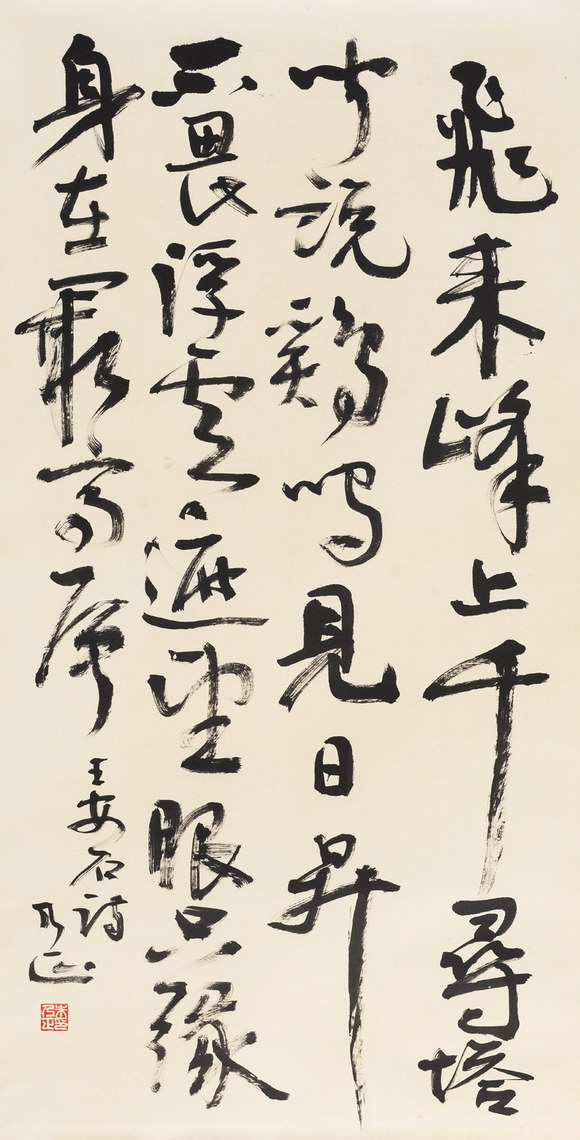 飛来峰上千尋塔
聞説鷄鳴見日昇
不畏浮雲遮望眼只緣
身在最高層
王安石詩
乃正